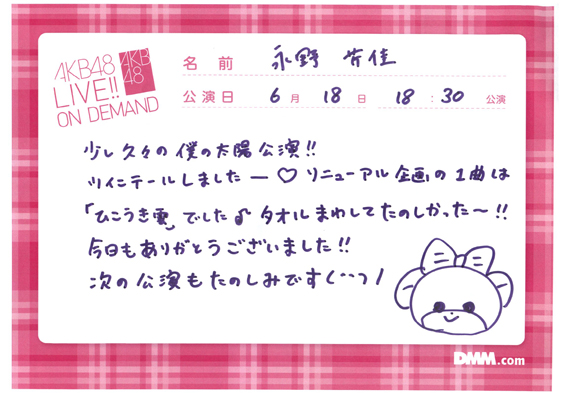 AKB48
LIVE!!
ON DEMAND
AKB
48
名前 永野 芹佳
公演日 6月 18日 18:30 公演
少し久々の僕の太陽公演!!
ツインテールしましたー♡ リニューアル企画の1曲は
「ひこうき雲」でした♪ タオルまわしてたのしかった〜!!
今日もありがとうございました!!
次の公演もたのしみです
DMM.com